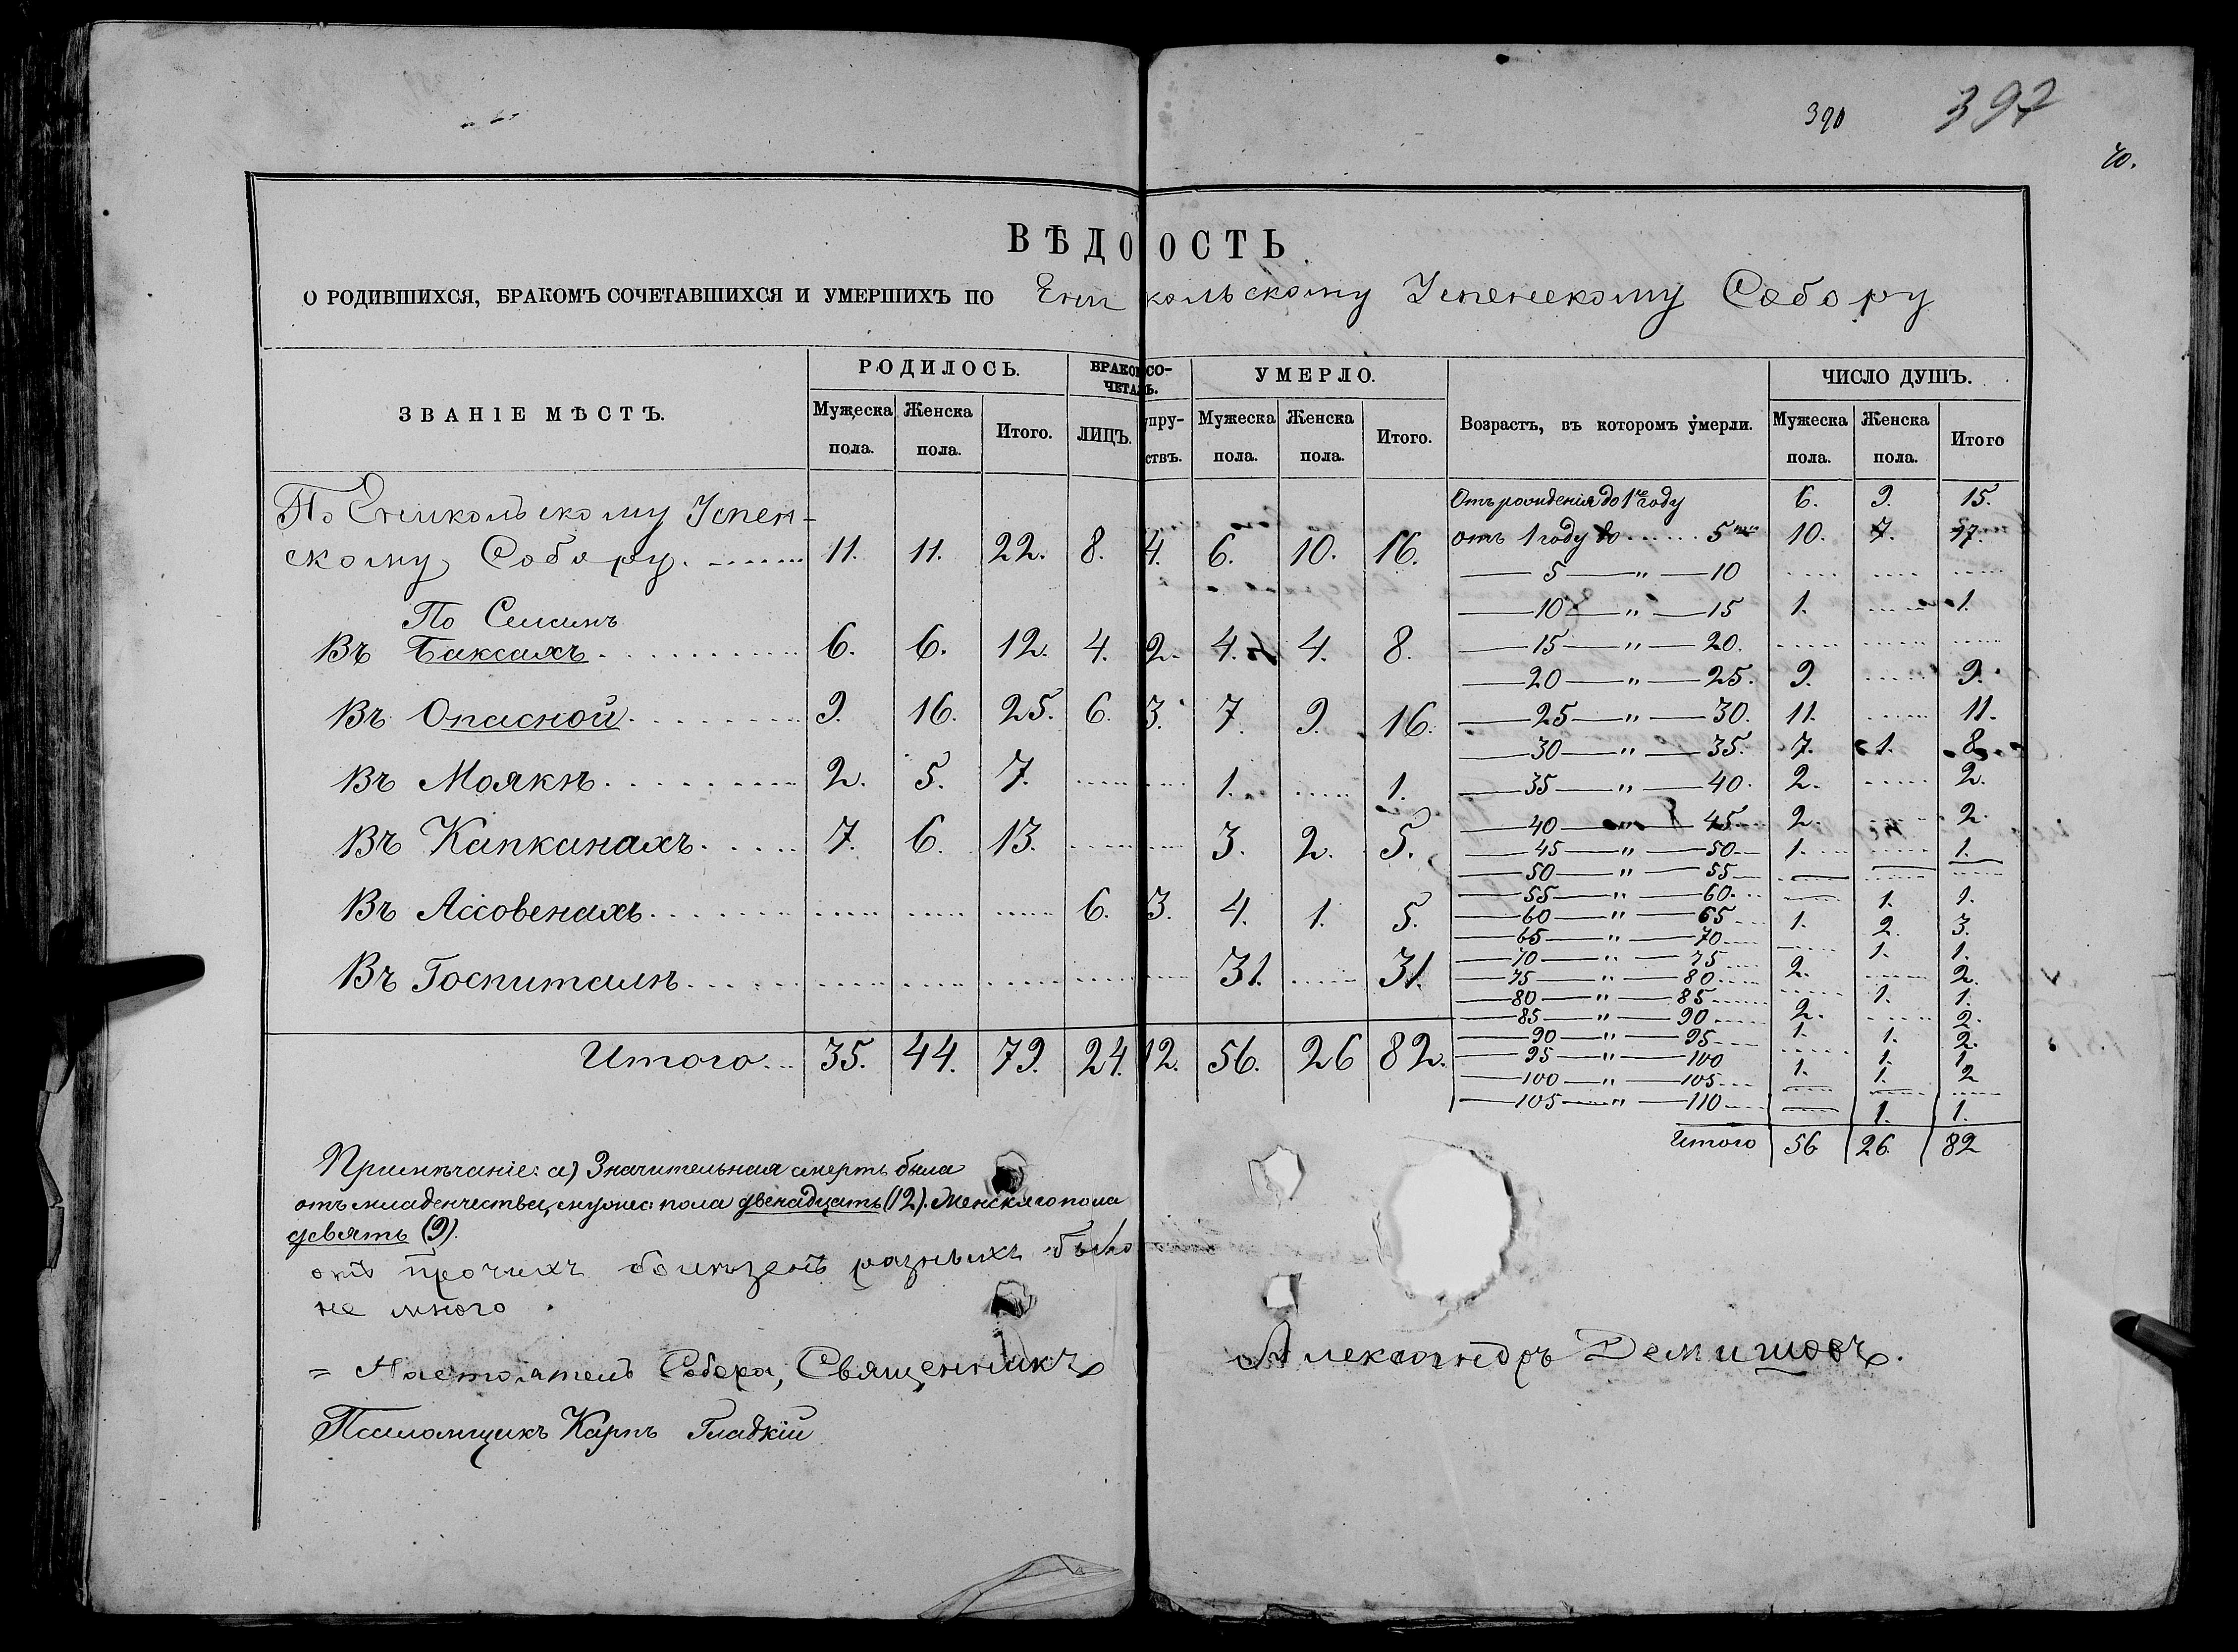 390 397
40.
ВѢДО ОСТЬ
О РОДИВШИХСЯ, БРАКОМЪ СОЧЕТАВШИХСЯ И УМЕРШИХЪ ПО Еникольскому Успенскому Собору
ЗВАНІЕ МѢСТЪ. РОДИЛОСЬ. БРАКО СО- УМЕРЛО. Возрастъ, въ которомъ умерли. ЧИСЛО ДУШЪ.
ЧЕТА Ь.
Мужеска Женска Итого. ЛИЦЪ. пру- Мужеска Женска Итого. Мужеска Женска Итого
пола. пола. ствъ. пола. пола. пола. пола.
По Еникольскому Успен-
скому Собору. 11. 11. 22. 8. 4. 6. 10. 16.
По Селамъ
Въ Баксахъ 6. 6. 12. 4. 2. 4. 4. 8.
Въ Опасной 9. 16. 25. 6. 3. 7. 9. 16.
Въ Маякѣ 2. 5. 7. 1. 1.
Въ Капканахъ 7. 6. 13. 3. 2. 5.
Въ Ассовенахъ 6. 3. 4. 1. 5.
Въ Госпиталѣ 31. 31.
Итого 35. 44. 79. 24. 12. 56. 26 82.
Отъ рожденія до 1го году 6. 9. 15.
отъ 1 году до 5ти 10. 7. 17.
5 — " — 10
10 — " — 15 1. 1.
15 — " — 20.
20 — " — 25. 9. 9.
25 — " — 30. 11. 11.
30 — " — 35. 7. 1. 8.
35 — " — 40. 2. 2.
40 — 45 2. 2.
45 — " — 50 1. 1.
50 — " — 55
55 — " — 60 1. 1.
60 — " — 65 1. 2. 3.
65 — " — 70 1. 1.
70 — " — 75 2. 2.
75 — " — 80 1. 1.
80 — " — 85 2. 2.
85 — " — 90 1. 1. 2.
90 — " — 95 1. 1.
95 — " — 100 1. 1. 2
100 — " — 105
105 — " — 110 1. 1.
Итого 56 26. 82
Примѣчаніе: а) Значительная смерть была
отъ младенчества, мужес: пола двенадцать (12). Женскаго пола
девять (9).
отъ прочихъ болѣзней разныхъ было
не много.
= Настоятель Собора, Священникъ Александръ Демишовъ.
Псаломщикъ Карпъ Гладкій